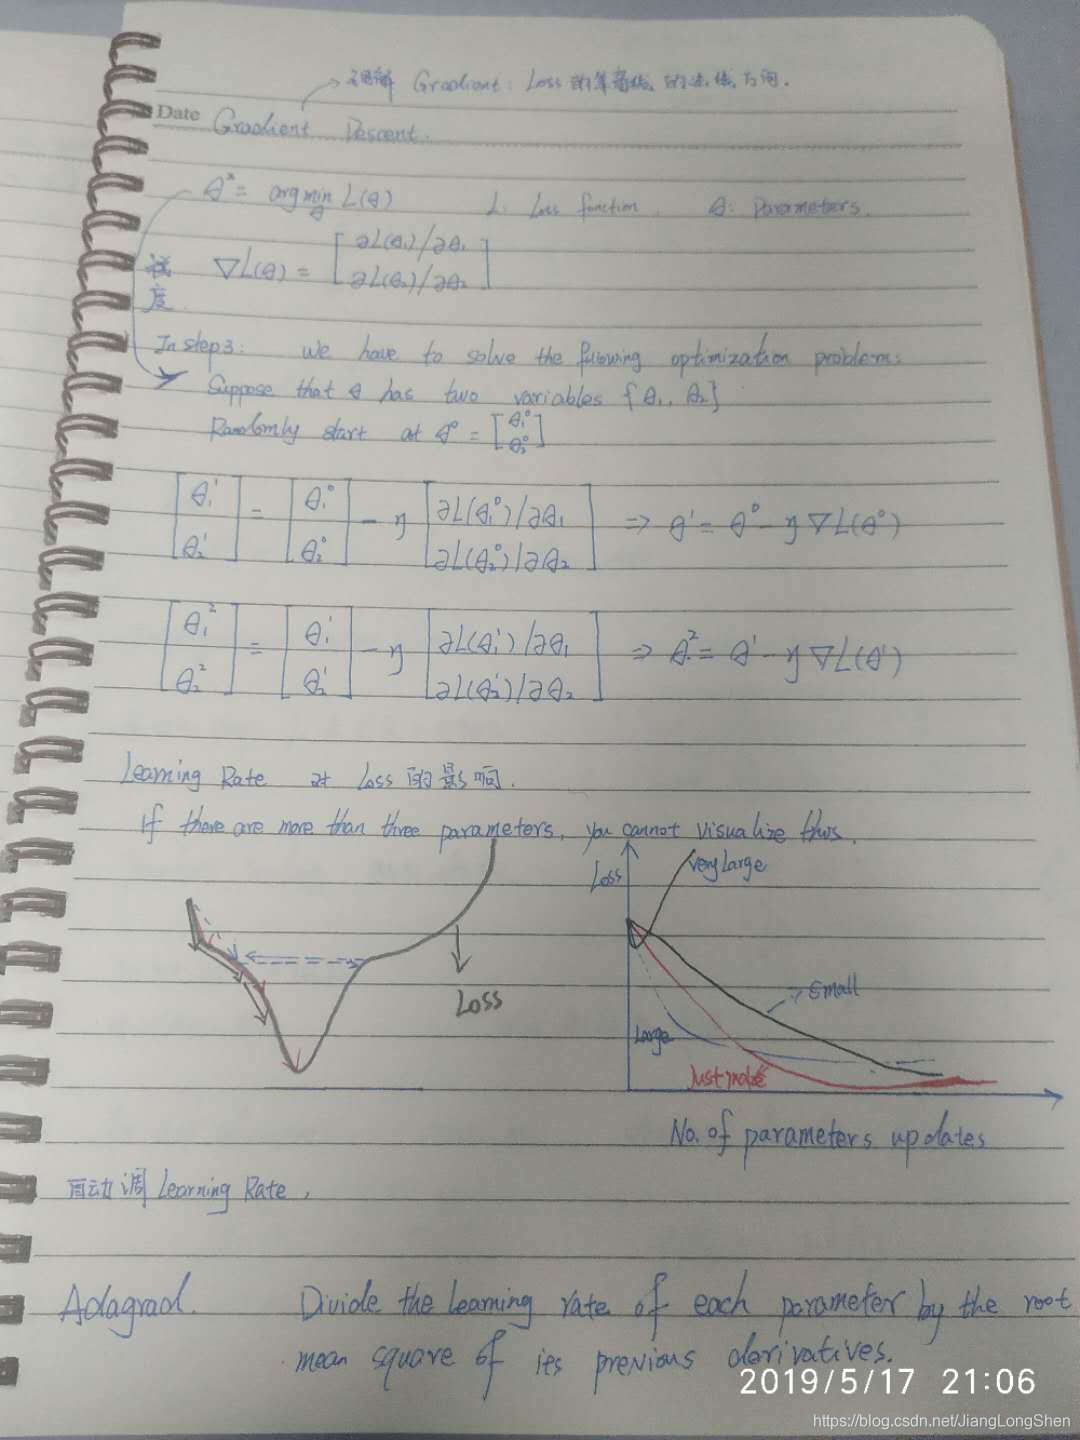 理解 Gradient: Loss的等高线的法线方向.
Date Gradient Descent.
θ* = arg min L(θ) L: Loss function. θ: parameters.
θ
∇L(θ) = [∂L(θ₁)/∂θ₁
∂L(θ₂)/∂θ₂]
度.
In step 3: we have to solve the following optimization problem:
Suppose that θ has two variables {θ₁, θ₂}
Randomly start at θ⁰ = [θ₁⁰
θ₂⁰]
[θ₁¹ θ₂¹] = [θ₁⁰ θ₂⁰] - η [∂L(θ₁⁰)/∂θ₁ ∂L(θ₂⁰)/∂θ₂] ⇒ θ¹ = θ⁰ - η∇L(θ⁰)
[θ₁² θ₂²] = [θ₁¹ θ₂¹] - η [∂L(θ₁¹)/∂θ₁ ∂L(θ₂¹)/∂θ₂] ⇒ θ² = θ¹ - η∇L(θ¹)
Learning Rate 对 Loss 的影响.
If there are more than three parameters, you cannot visualize this.
Loss
Loss
very Large
small
Large
Just make
No. of parameters updates
自动调 Learning Rate,
Adagrad. Divide the learning rate of each parameter by the root
mean square of its previous derivatives.
2019/5/17 21:06
https://blog.csdn.net/JiangLongShen